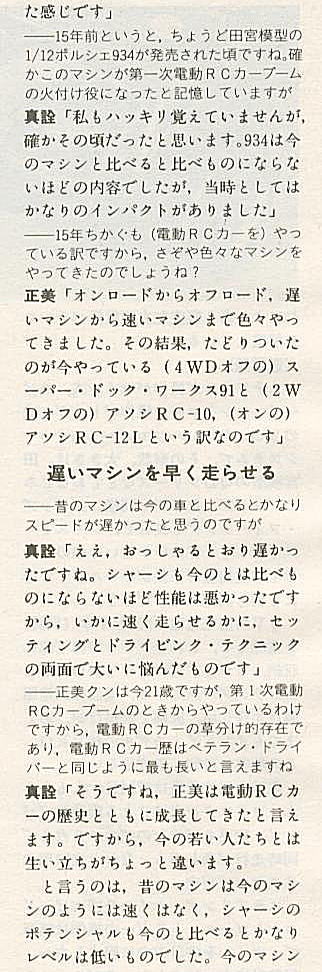 た感じです」
――15年前というと，ちょうど田宮模型の
1/12ポルシェ934が発売された頃ですね。確
かこのマシンが第一次電動ＲＣカーブーム
の火付け役になったと記憶していますが
真詮「私もハッキリ覚えていませんが，
確かその頃だったと思います。934は今
のマシンと比べると比べものにならな
いほどの内容でしたが，当時としては
かなりのインパクトがありました」
――15年ちかくも（電動ＲＣカーを）やっ
ている訳ですから，さぞや色々なマシンを
やってきたのでしょうね？
正美「オンロードからオフロード，遅
いマシンから速いマシンまで色々やっ
てきました。その結果，たどりついた
のが今やっている（４ＷＤオフの）ス
ーパー・ドック・ワークス91と（２Ｗ
Ｄオフの）アソシＲＣ-10，（オンの）
アソシＲＣ-12Ｌという訳なのです」
遅いマシンを早く走らせる
――昔のマシンは今の車と比べるとかなり
スピードが遅かったと思うのですが
真詮「ええ，おっしゃるとおり遅かっ
たですね。シャーシも今のとは比べも
のにならないほど性能は悪かったです
から，いかに速く走らせるかに，セッ
ティングとドライビンク・テクニック
の両面で大いに悩んだものです」
――正美クンは今21歳ですが，第１次電動
RCカーブームのときからやっているわけ
ですから，電動ＲＣカーの草分け的存在で
あり，電動ＲＣカー歴はベテラン・ドライ
バーと同じように最も長いと言えますね
真詮「そうですね，正美は電動ＲＣカ
ーの歴史とともに成長してきたと言え
ます。ですから，今の若い人たちとは
生い立ちがちょっと違います。
　と言うのは，昔のマシンは今のマシ
ンのようには速くはなく，シャーシの
ポテンシャルも今のと比べるとかなり
レベルは低いものでした。今のマシン